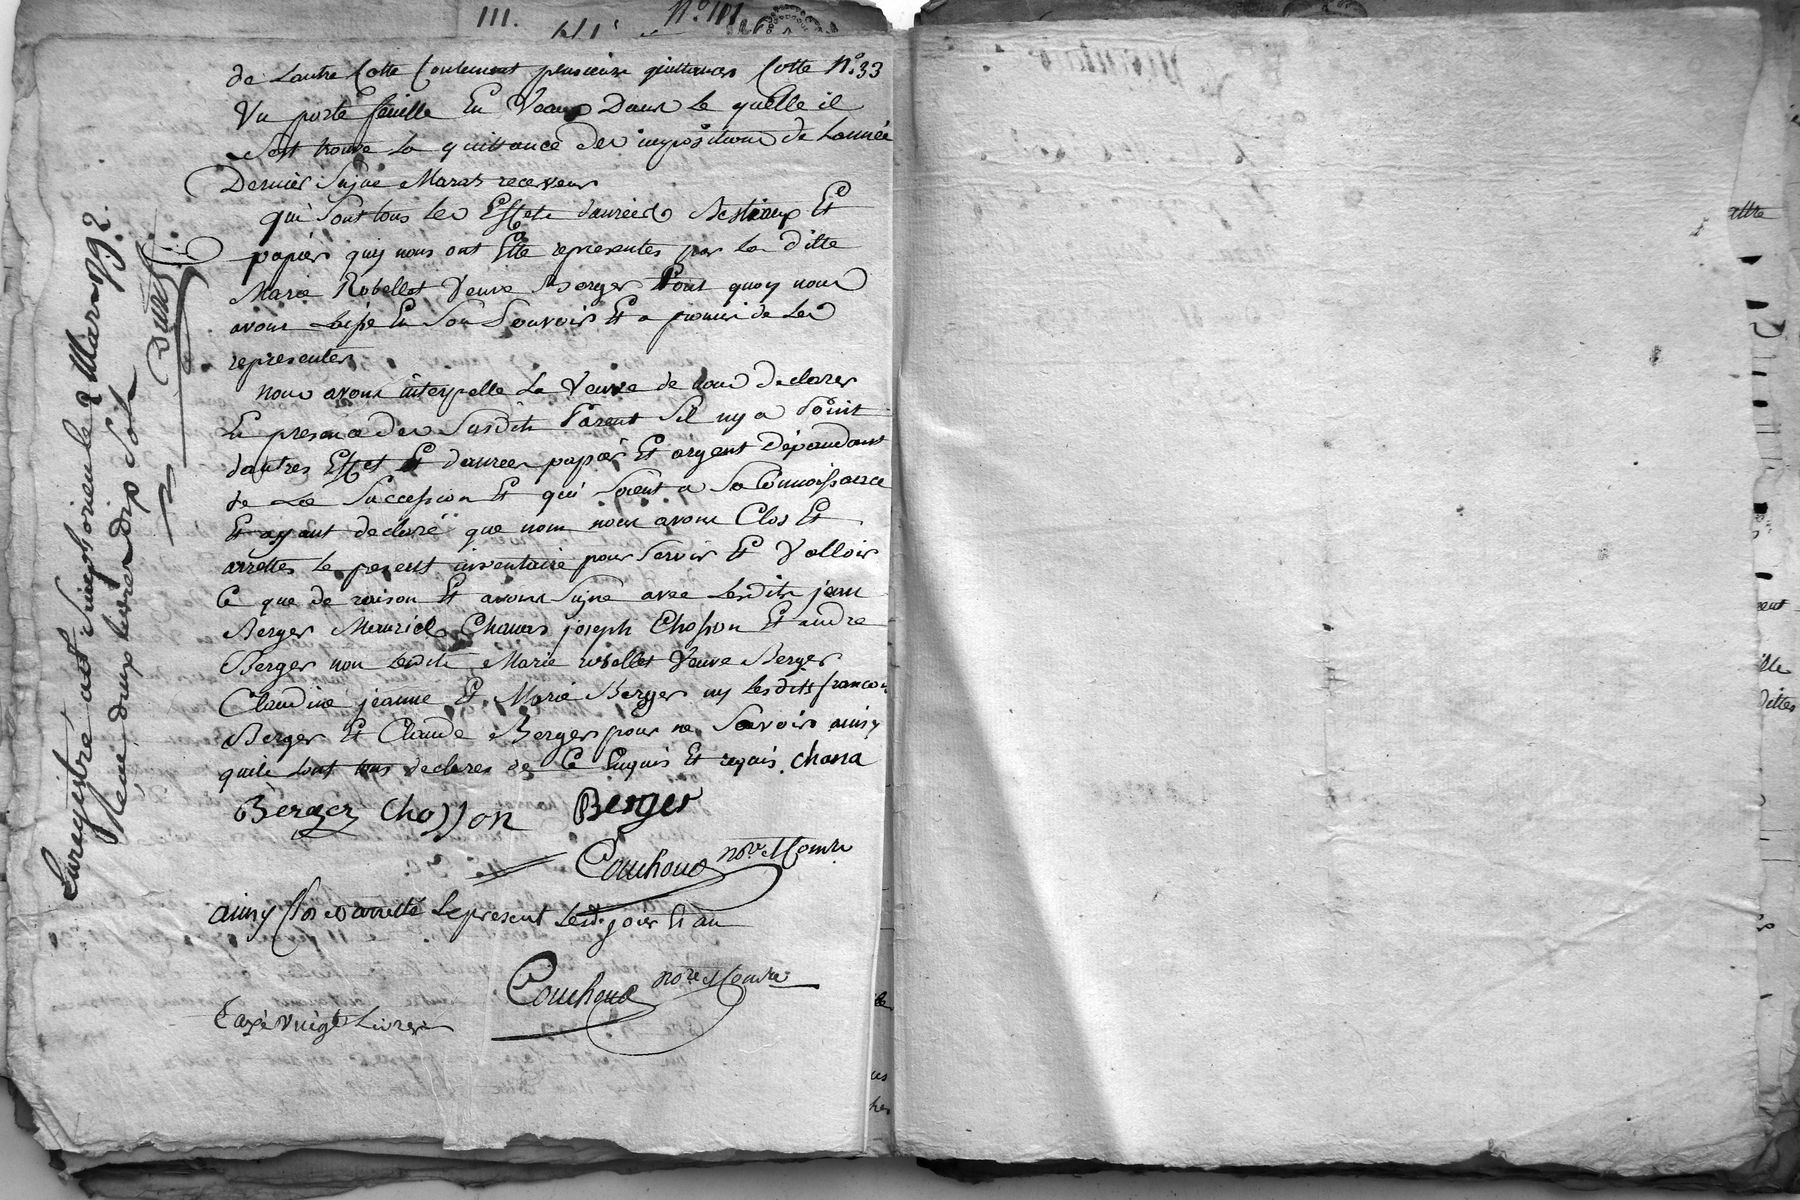 III.
N.o III
de Lautre Cotte Contenant plusieurs quittances Cotte N.o 33
Un porte feuille En Veaux Dans le quelle il
Sest trouve La quittance des impositions de Lannée
Dernier Signe Maras receveur
qui Sont tous les Effets danrées Bestiaux Et
papiers quy nous ont Etté represantes par La ditte
Marie Robellet Veuve Berger Pour quoy nous
avons Laissé En Son Pouvoir Et a promis de Les
representer
Nous avons interpelle La Veuve de nous declarer
En presence des Susdits Parent Sil ny a Point
dautres Effet Et danrees papier Et argent Dépandant
de La Succession Et qui Soient a Sa Connoissance
Et ayant declaré que non nous avons Clos Et
arrettes Le present inventaire pour Servir Et Valloir
Ce que de raison Et avons Signe avec Lesdits jean
Berger Meurice Chanas joseph Chosson Et andre
Berger non Ledite Marie robellet Veuve Berger
Claudine jeanne Et Marie Berger ny Lesdits francois
Berger Et Claude Berger pour ne Savoir ainsy
quils Sont tous declares de Ce Enquis Et requis. Chana
Berger Chosson Berger
Couchoud No.re Comre
ainsy Clos et arretté Le present Lesd. jour Et an
Couchoud No.re Comre
Taxé vingt Livres
Enregistré a St Simphorien le 2 Mars 1792.
Recu deux livres dix sols